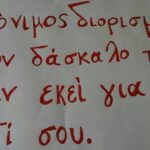 όνιμος διορισμ
ον δάσκαλο τ
ν εκεί για
τί σου.